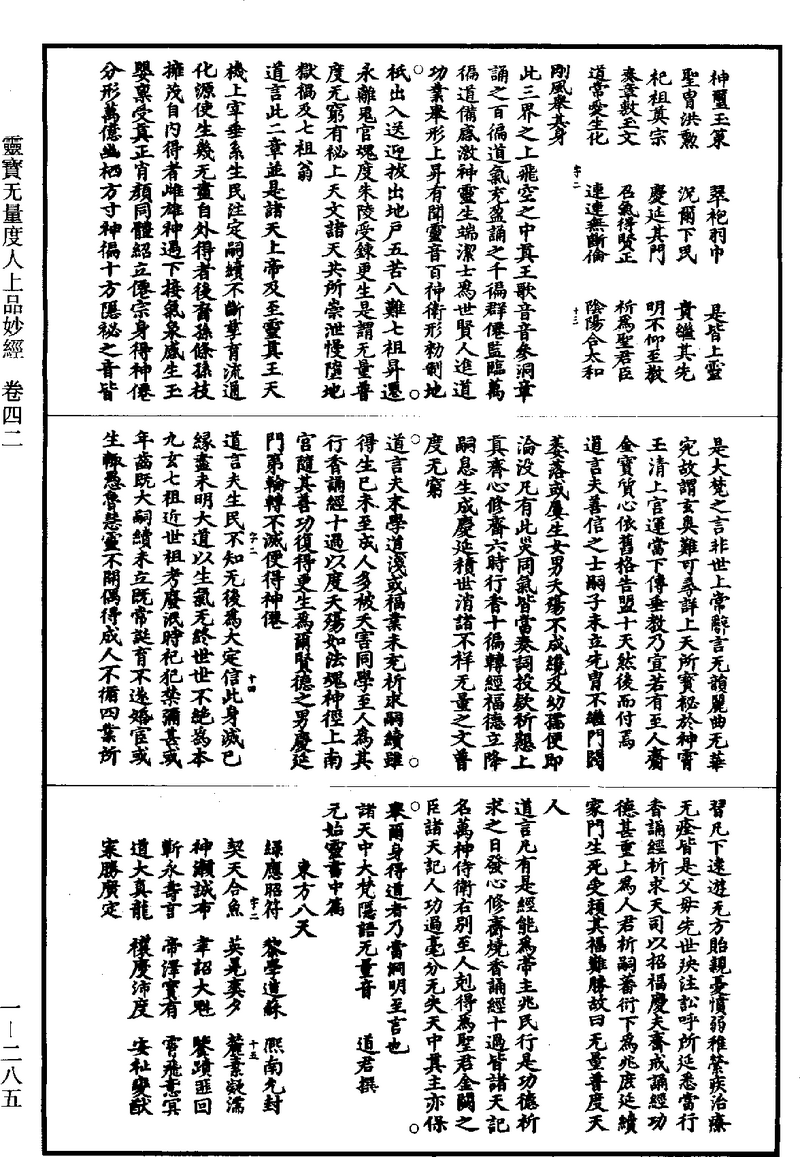 靈寶无量度人上品妙經 卷四二
一—二八五
神璽玉策 翠袍羽巾 是皆上靈
聖胄洪勲 況爾下民 貴繼其先
祀祖真宗 慶延其門 明不仰至教
奏章敷玉文 召氣得賢正 祈爲聖君臣
道常愛生化 連連無斷倫 陰陽合太和
剛風舉其身 字二 十三
此三界之上飛空之中真王歌音音參洞章
誦之百徧道氣充盈誦之千徧群僊監臨萬
徧道備感激神靈生端潔士爲世賢人進道
功業舉形上昇有聞靈音百神衛形勑制地
祇出入送迎拔出地戶五苦八難七祖昇遷
永離鬼官魂度朱陵受鍊更生是謂无量普
度无窮有祕上天文諸天共所崇泄慢墮地
獄禍及七祖翁
道言此二章並是諸天上帝及至靈真王天
機上宰垂系生民注定嗣續不斷孳育流通
化源使生幾无盡自外得者後裔孫條孫枝
擁茂自内得者雌雄神遇下接氣象感生玉
嬰稟受真正肖顔同體紹立僊宗身得神僊
分形萬億幽栖方寸神徧十方隱祕之音皆
是大梵之言非世上常辭言无韻麗曲无華
宛故謂玄奥難可尋詳上天所寳祕於神霄
玉清上宫運當下傳垂教乃宣若有至人齎
金寳質心依舊格告盟十天然後而付焉
道言夫善信之士嗣子未立先胄不繼門閥
萎落或屢生女男夭殤不成纔及幼孺便即
淪没凡有此災同氣皆當奏詞投欵祈懇上
真齋心修齋六時行香十徧轉經福德立降
嗣息生成慶延積世消諸不祥无量之文普
度无窮
道言夫末學道淺或福業未充祈求嗣續雖
得生已未至成人多被夭害同學至人爲其
行香誦經十過以度夭殤如法魂神徑上南
宫隨其善功復得更生爲爾賢德之男慶延
門第輪轉不滅便得神僊
道言夫生民不知无後爲大定信此身滅已
緣盡未明大道以生氣无終世世不絶爲本
九玄七祖近世祖考廢泯時祀犯禁彌甚或
年齒既大嗣續未立既常誕育不遂婚宦或
生輙愚魯慧靈不開偶得成人不循四業所
習凡下遠遊无方貽親憂憤弱稚縈疾治療
无痊皆是父母先世殃注訟呼所延悉當行
香誦經祈求天司以招福慶夫齋戒誦經功
德甚重上爲人君祈嗣蕃衍下爲兆庶延續
家門生死受賴其福難勝故曰无量普度天
人
道言凡有是經能爲帝主兆民行是功德祈
求之日發心修齋燒香誦經十過皆諸天記
名萬神侍衛右别至人剋得爲聖君金闕之
臣諸天記人功過毫分无失天中真主亦保
舉爾身得道者乃當洞明至言也
諸天中大梵隱語无量音 道君撰
元始靈書中篇
東方八天
緑應昭符 黎學道蘇 熙南允封
契天合魚 英晃奕夕 麓素凝濡
神瀨誠布 韋詔大魁 鑒蹟匪回
斬永壽音 帝澤實有 霄飛意冥
道大真龍 穰慶沛度 安祉變猷
家勝廣定